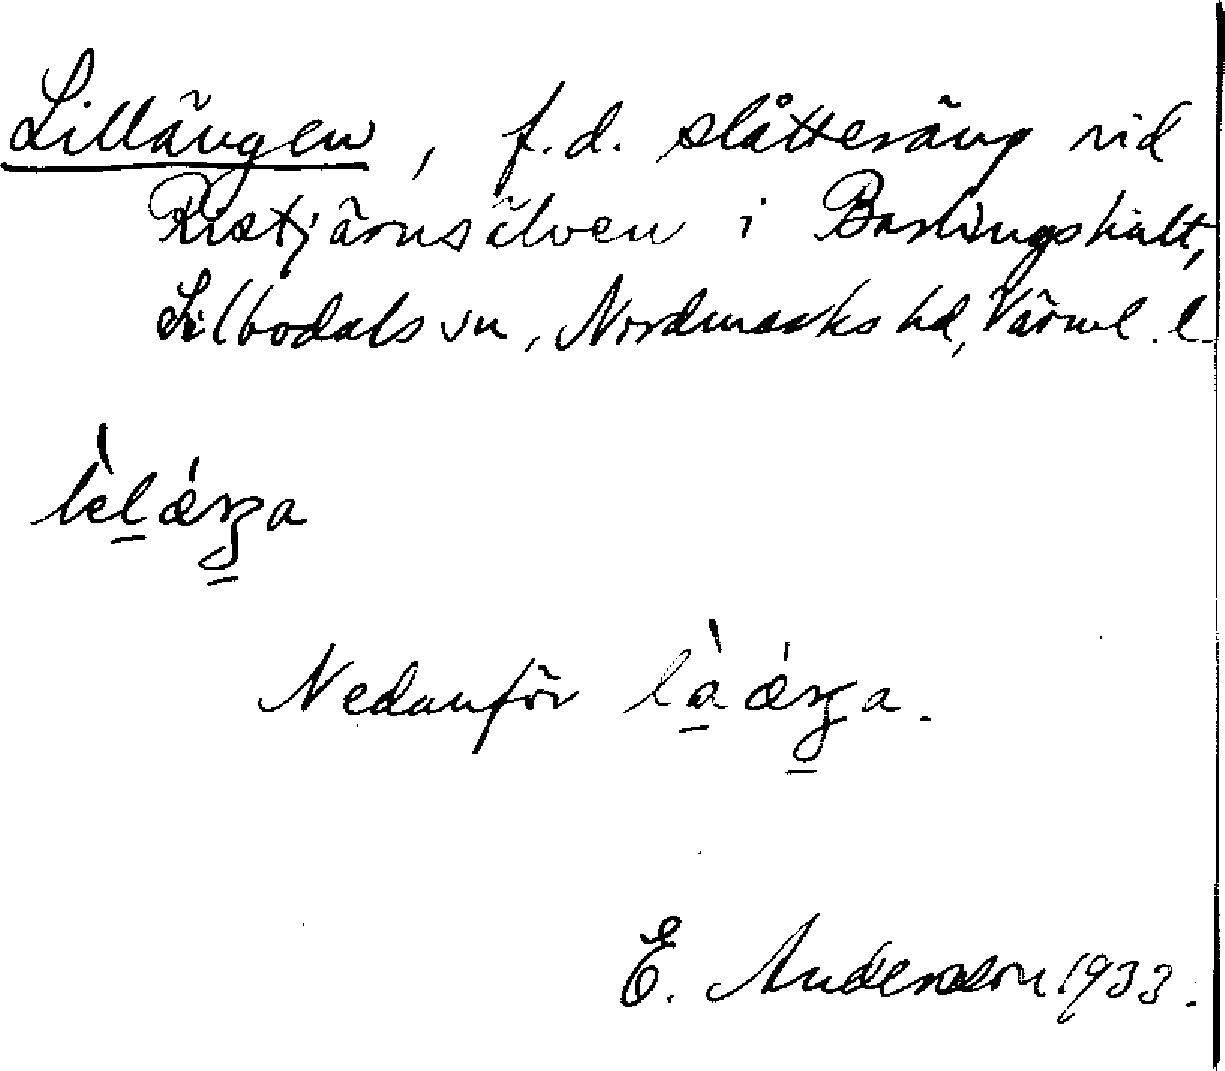 Lillängen, f.d. slåtteräng vid
Ristjärnsälven i Barlingshult,
Silbodals sn, Nordmarks hd, Värml. l.
Nedanför
E. Andersson 1933.